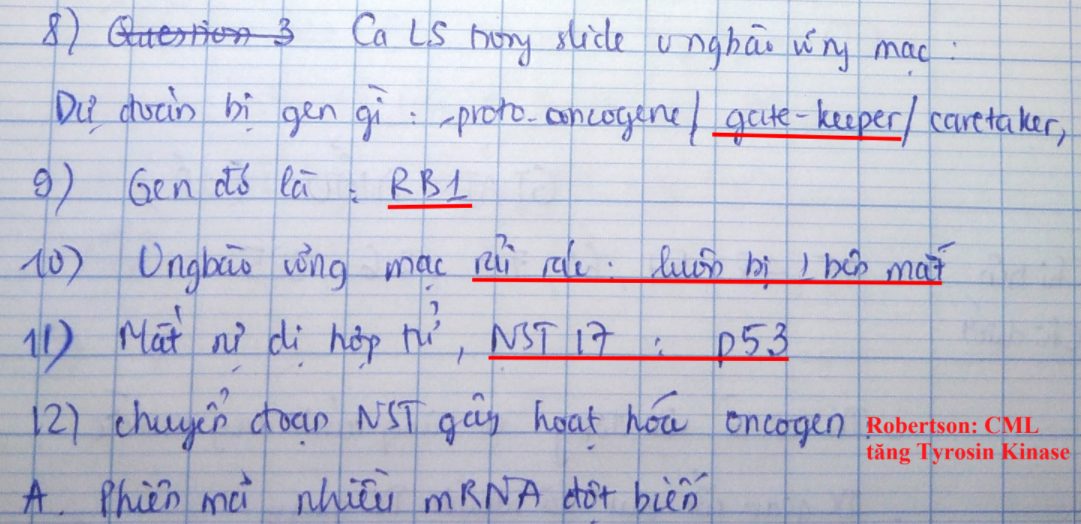 8) Question 3 Ca LS trong slide ung bào võng mạc :
Dự đoán bị gen gì : -proto-oncogene / gate-keeper / caretaker,
9) Gen đó là : RB1
10) Ung bào võng mạc rải rác : luôn bị 1 bên mắt
11) Mất sự dị hợp tử, NST 17 : p53
12) chuyển đoạn NST gây hoạt hóa oncogen : Robertson: CML
tăng Tyrosin Kinase
A. Phiên mã nhiều mRNA đột biến